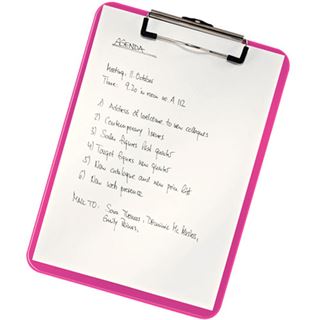 AGENDA
Meeting: 11 October
Time: 9.20 in room no. A 112
1) Address of welcome to new colleagues
2) Contemporary Issues
3) Sales figures last quarter
4) Target figures new quarter
5) New catalogue and new price list
6) New web presence
MAIL TO: Sara Thomas, Dominic Mc
Emily